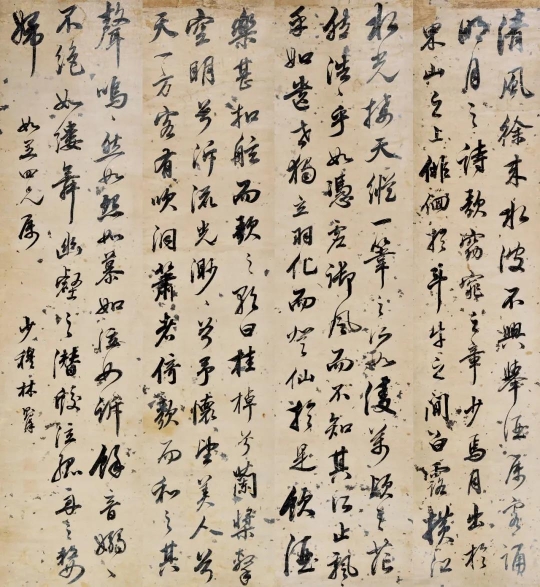 清風徐來水波不興舉酒屬客誦
明月之詩歌窈窕之章少焉月出於
東山之上徘徊於斗牛之間白露橫江
水光接天縱一葦之所如凌萬頃之茫
然浩〻乎如憑虛御風而不知其所止飄
乎如遺世獨立羽化而登仙於是飲酒
樂甚扣舷而歌之歌曰桂棹兮蘭槳擊
空明兮泝流光渺〻兮予懷望美人兮
天一方客有吹洞簫者倚歌而和之其
聲嗚〻然如怨如慕如泣如訴餘音嫋〻
不絕如縷舞幽壑之潛蛟泣孤舟之嫠
婦
四兄屬
少穆林則徐